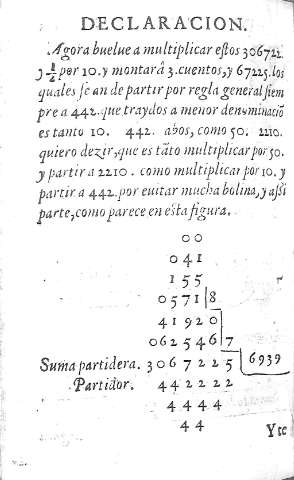 DECLARACION.
Agora buelue a multiplicar estos 306722.
y ½ por 10. y montarâ 3. cuentos, y 67225. los
quales se an de partir por regla general siem
pre a 442. que traydos a menor denominaciõ
es tanto 10. 442. abos, como 50. 2210.
quiero dezir, que es tãto multiplicar por 50.
y partir a 2210. como multiplicar por 10. y
partir a 442. por euitar mucha bolina, y assi
parte, como parece en esta figura.
0 0
0 4 1
1 5 5
0 5 7 1 | 8
4 1 9 2 0
0 6 2 5 4 6 | 7
Suma partidera. 3 0 6 7 2 2 5 | 6939
Partidor. 4 4 2 2 2 2
4 4 4 4
4 4
Y te